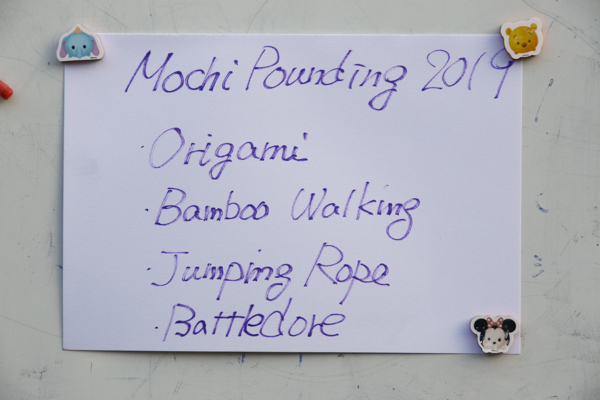 Mochi Pounding 2019
· Origami
· Bamboo Walking
· Jumping Rope
· Battledore